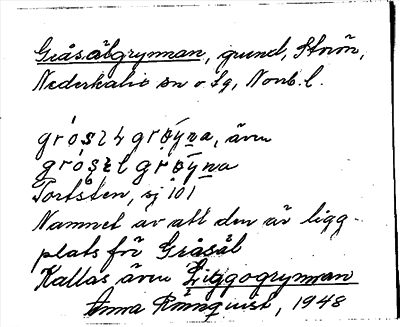 Gråsälgrynnan, grund, Storön,
Nederkalix sn o. lg, Norrb. l.
även
Tortsten, sj 101
Namnet av att den är ligg-
plats för Gråsäl
Kallas även Liggogrynnan
Anna Rönnqvist, 1948